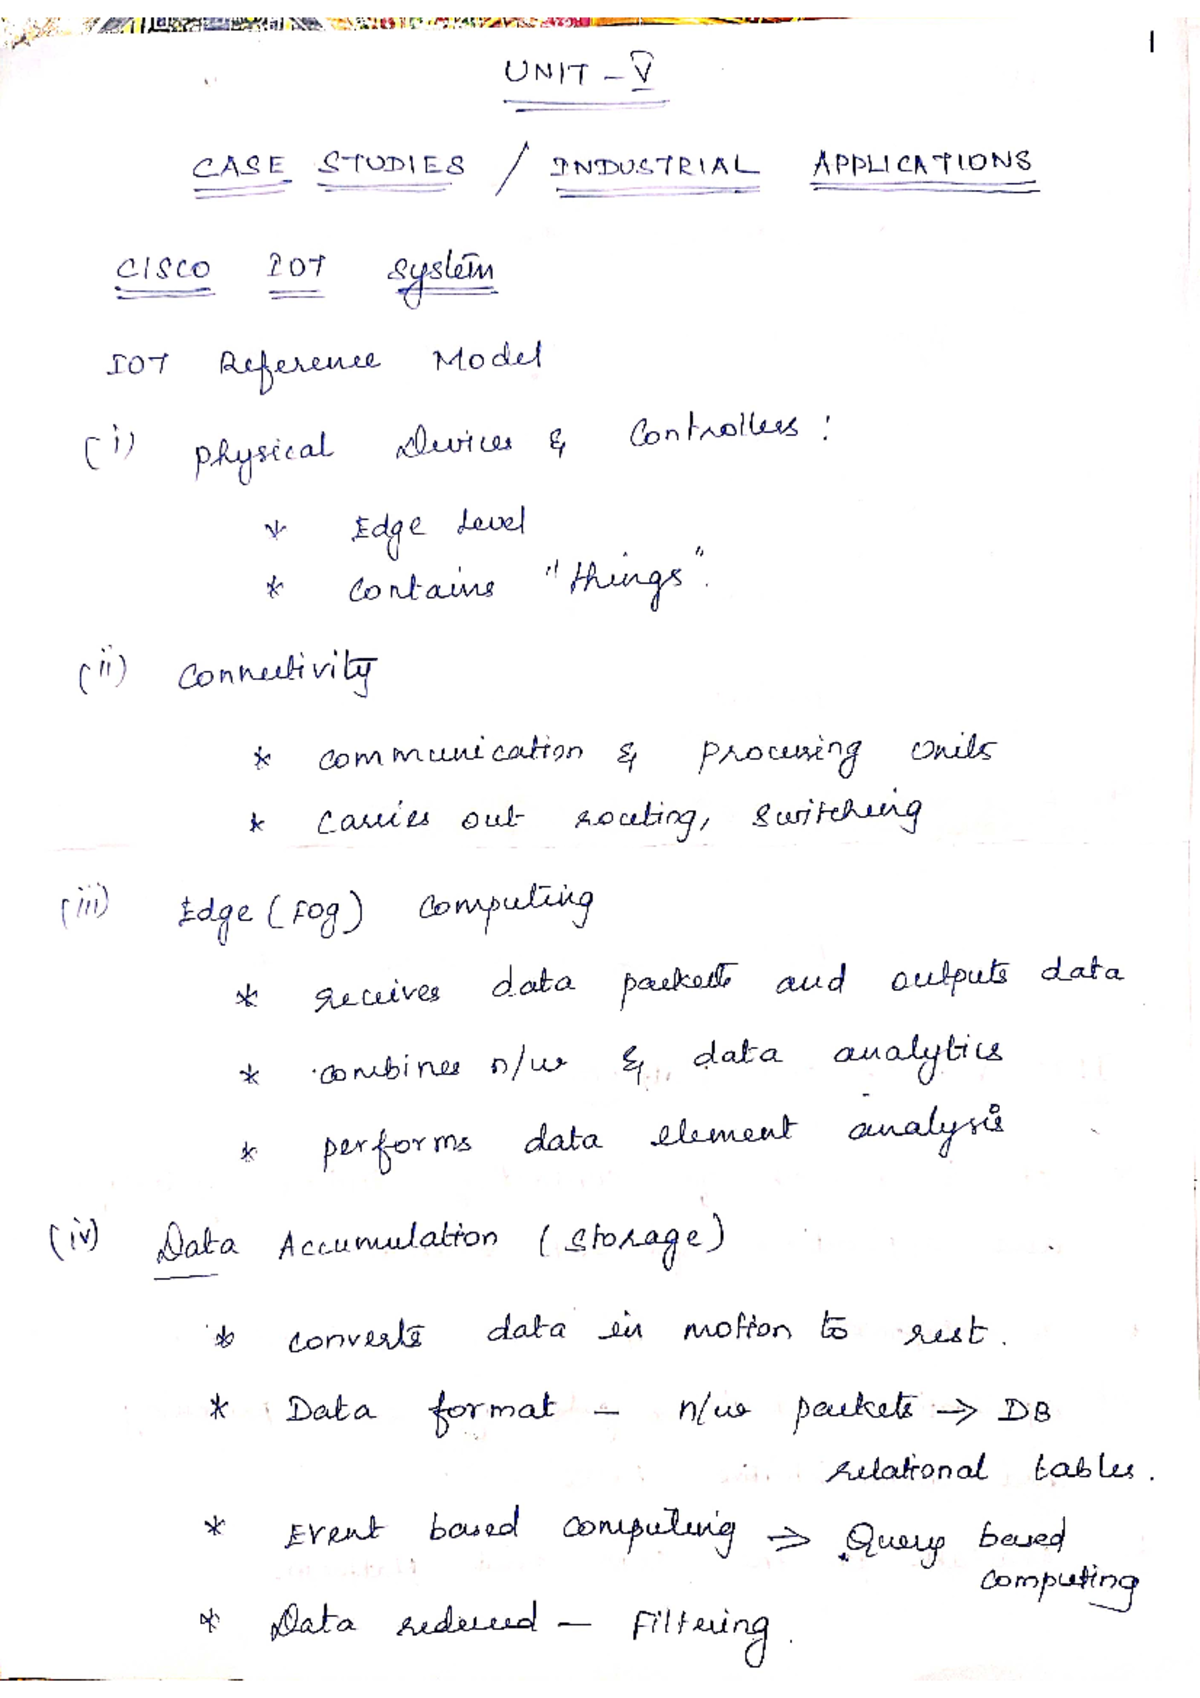 1
UNIT - V
CASE STUDIES / INDUSTRIAL APPLICATIONS
CISCO IOT System
IOT Reference Model
(i) Physical Devices & Controllers :
* Edge Level
* Contains "things".
(ii) Connectivity
* communication & processing units
* Carries out routing, switching
(iii) Edge (Fog) Computing
* receives data packets and outputs data
* combines n/w & data analytics
* performs data element analysis
(iv) Data Accumulation (Storage)
* converts data in motion to rest.
* Data format - n/w packets → DB
relational tables.
* Event based computing ⇒ Query based
computing
* Data reduced - Filtering.